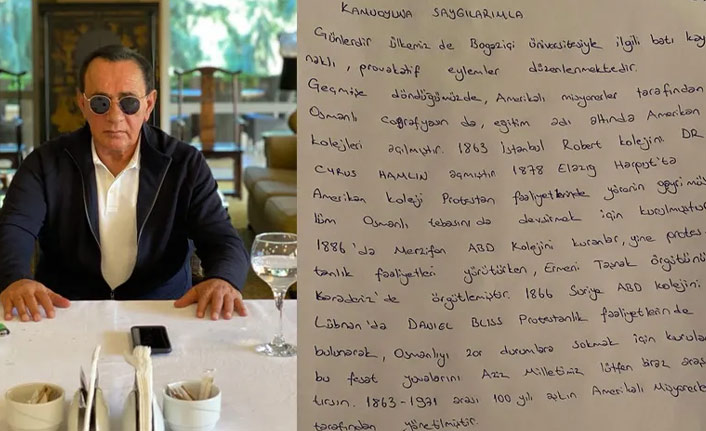 KAMUOYUNA SAYGILARIMLA
Günlerdir ülkemiz de Bogaziçi üniversitesiyle ilgili batı kay
naklı, provakatif eylemler düzenlenmektedir.
Geçmişe döndüğümüzde, Amerikalı misyonerler tarafından
Osmanlı coğrafyasın da, eğitim adı altında Amerikan
kolejleri açılmıştır. 1863 İstanbul Robert kolejini DR
CYRUS HAMLIN açmıştır 1878 Elazığ Harput'ta
Amerikan koleji Protestan faaliyetlerinde yörenin gayri müs
lüm Osmanlı tebasını da devşirmek için kurulmuştur
1886'da Merzifon ABD Kolejini kuranlar, yine protes
tanlık faaliyetleri yürütürken, Ermeni Taşnak örgütünü
Karadeniz'de örgütlemiştir. 1866 Suriye ABD kolejini
Lübnan'da DANIEL BLISS Protestanlık faaliyetlerin de
bulunarak, Osmanlıyı zor durumlara sokmak için kurulan
bu fesat yuvalarını Aziz Milletimiz lütfen biraz araş
tırsın. 1863-1971 arası 100 yılı aşkın Amerikalı Misyonerler
tarafından yönetilmiştir.